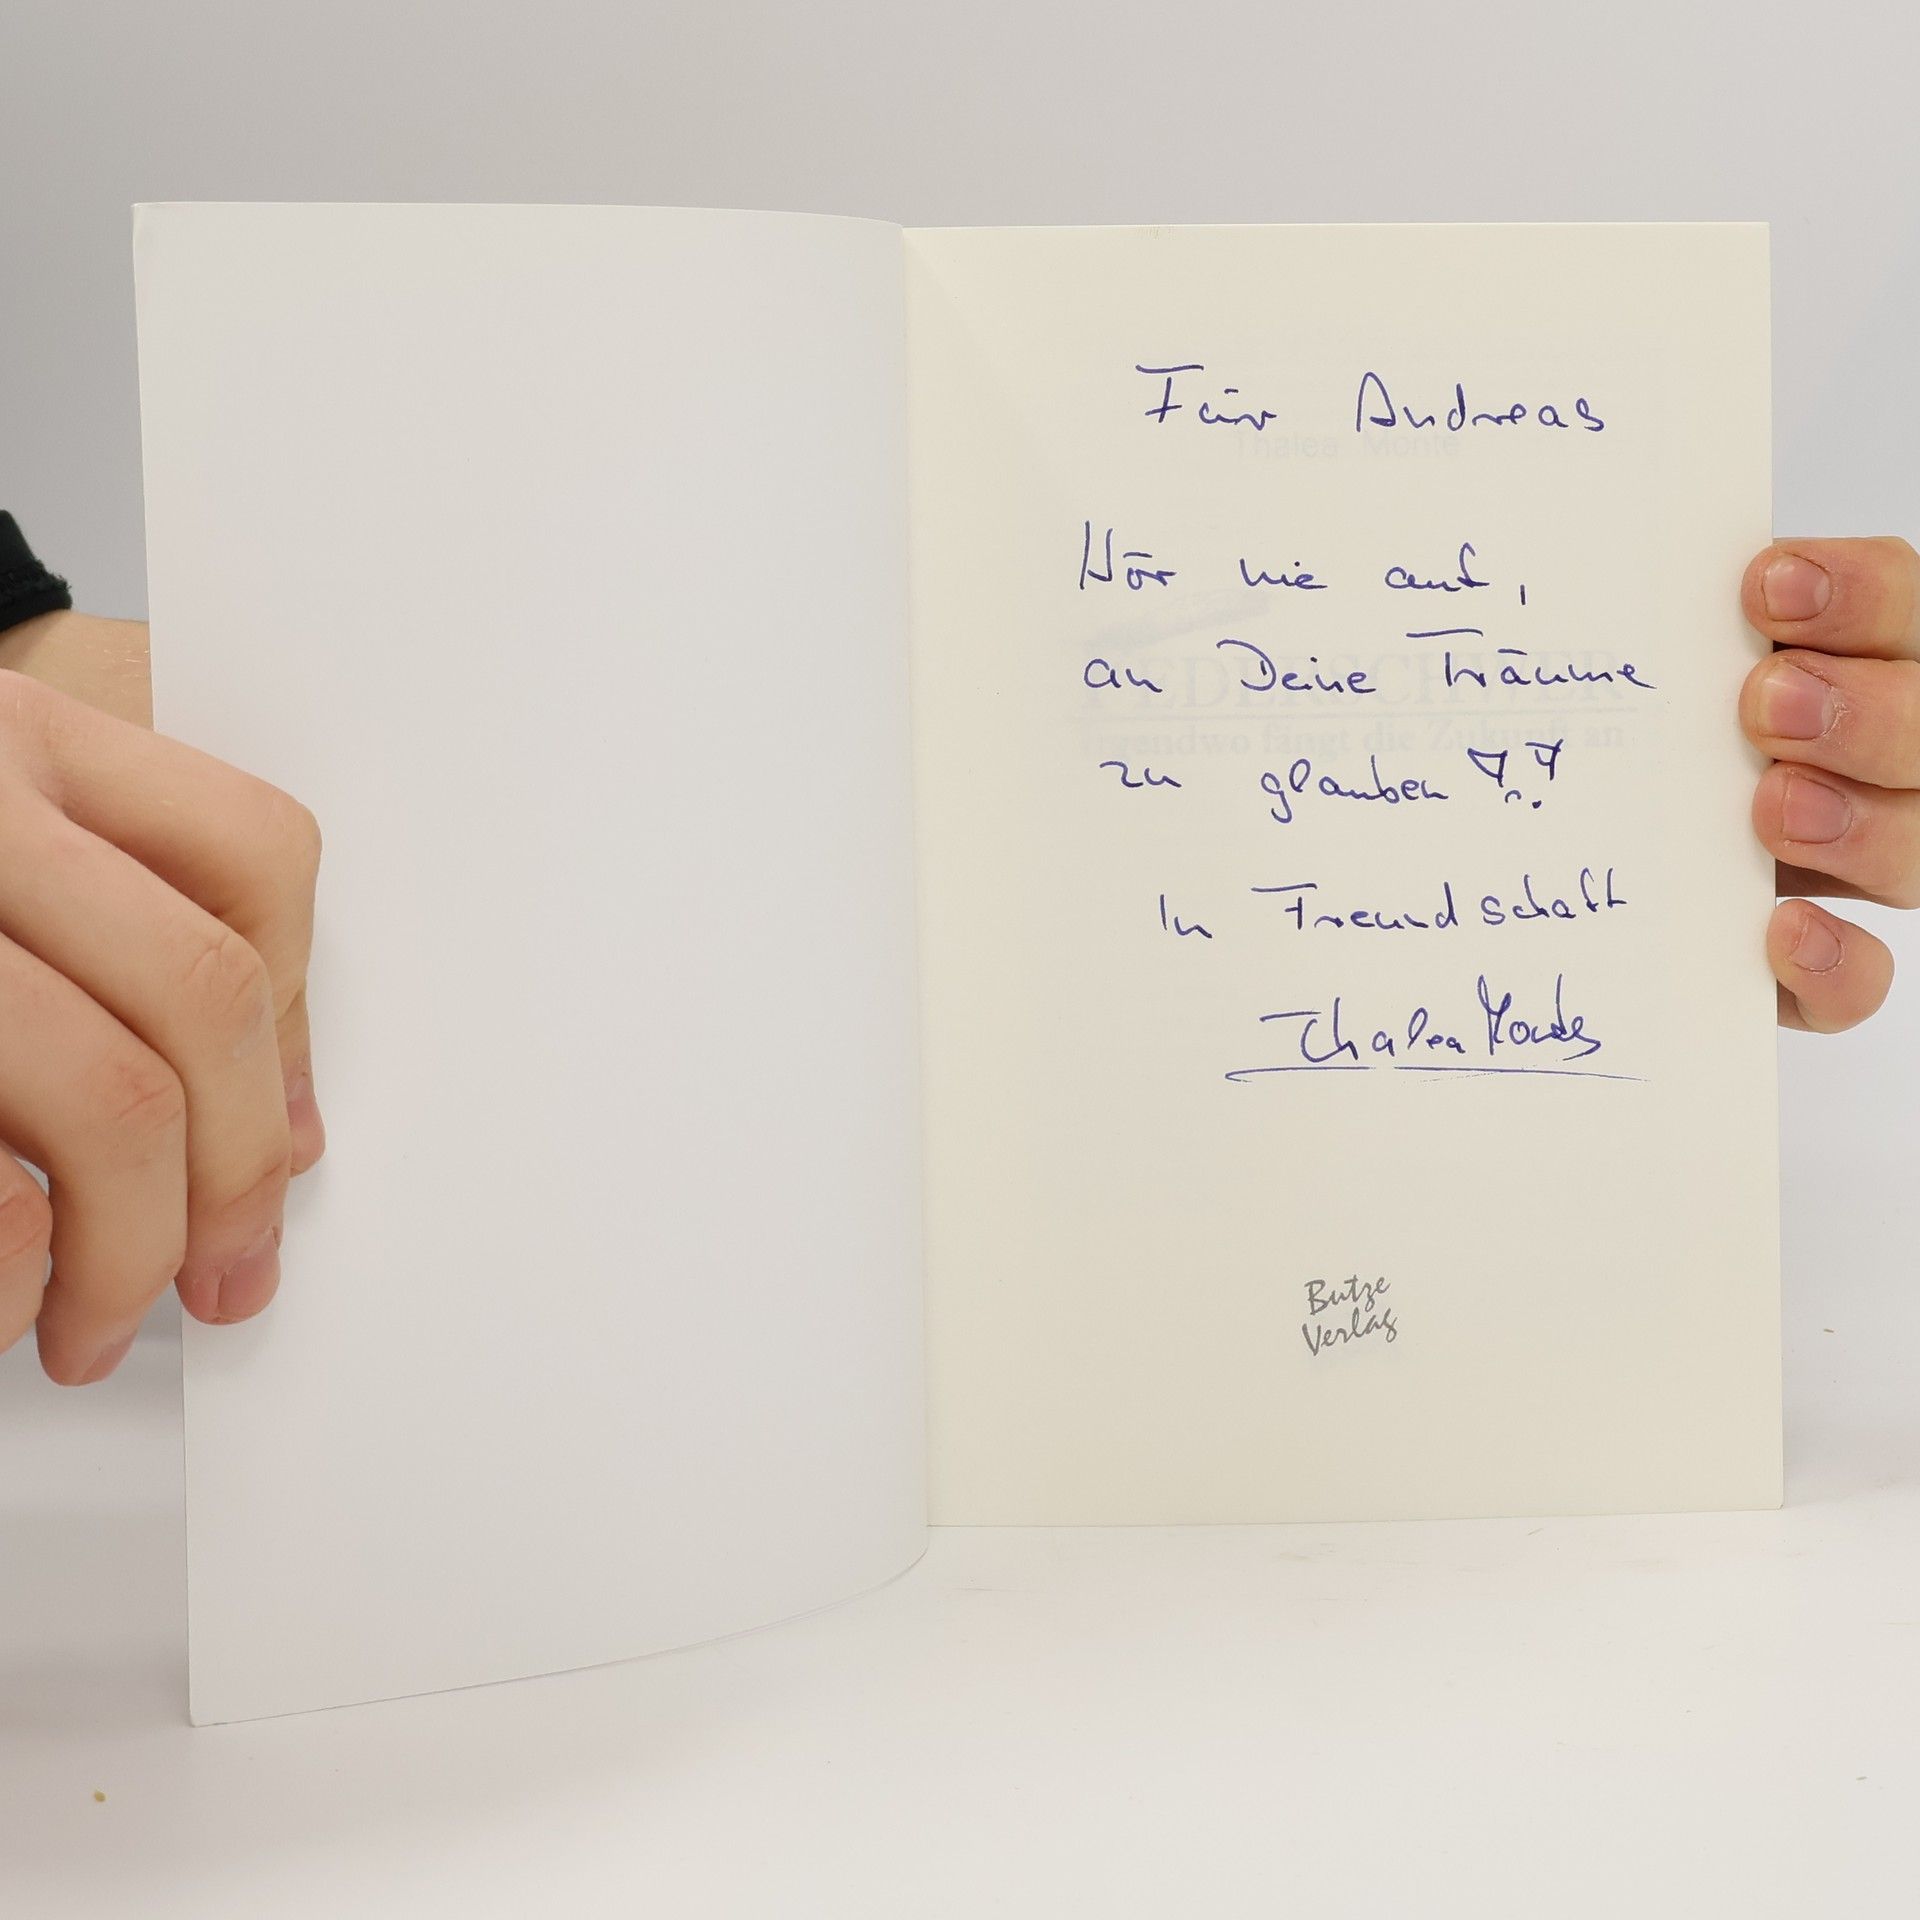 Für Andreas
Thalea Monte
Hör nie auf,
an Deine Träume
FEDERSCHWER
Irgendwo fängt die Zukunft an
zu glauben !!
In Freundschaft
Thalea Monte
Butze
Verlag